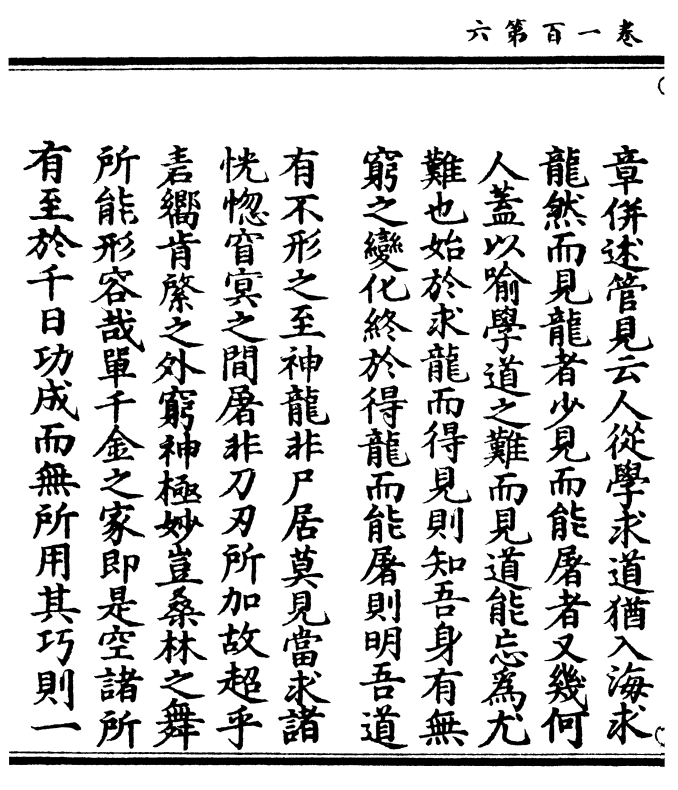 六第百一卷
章併述管見云人從學求道猶入海求
龍然而見龍者少見而能屠者又幾何
人蓋以喻學道之難而見道能忘爲尤
難也始於求龍而得見則知吾身有無
窮之變化終於得龍而能屠則明吾道
有不形之至神龍非尸居莫見當求諸
恍惚窅冥之間屠非刀刃所加故超乎
砉嚮肯綮之外窮神極妙豈桑林之舞
所能形容哉單千金之家即是空諸所
有至於千日功成而無所用其巧則一